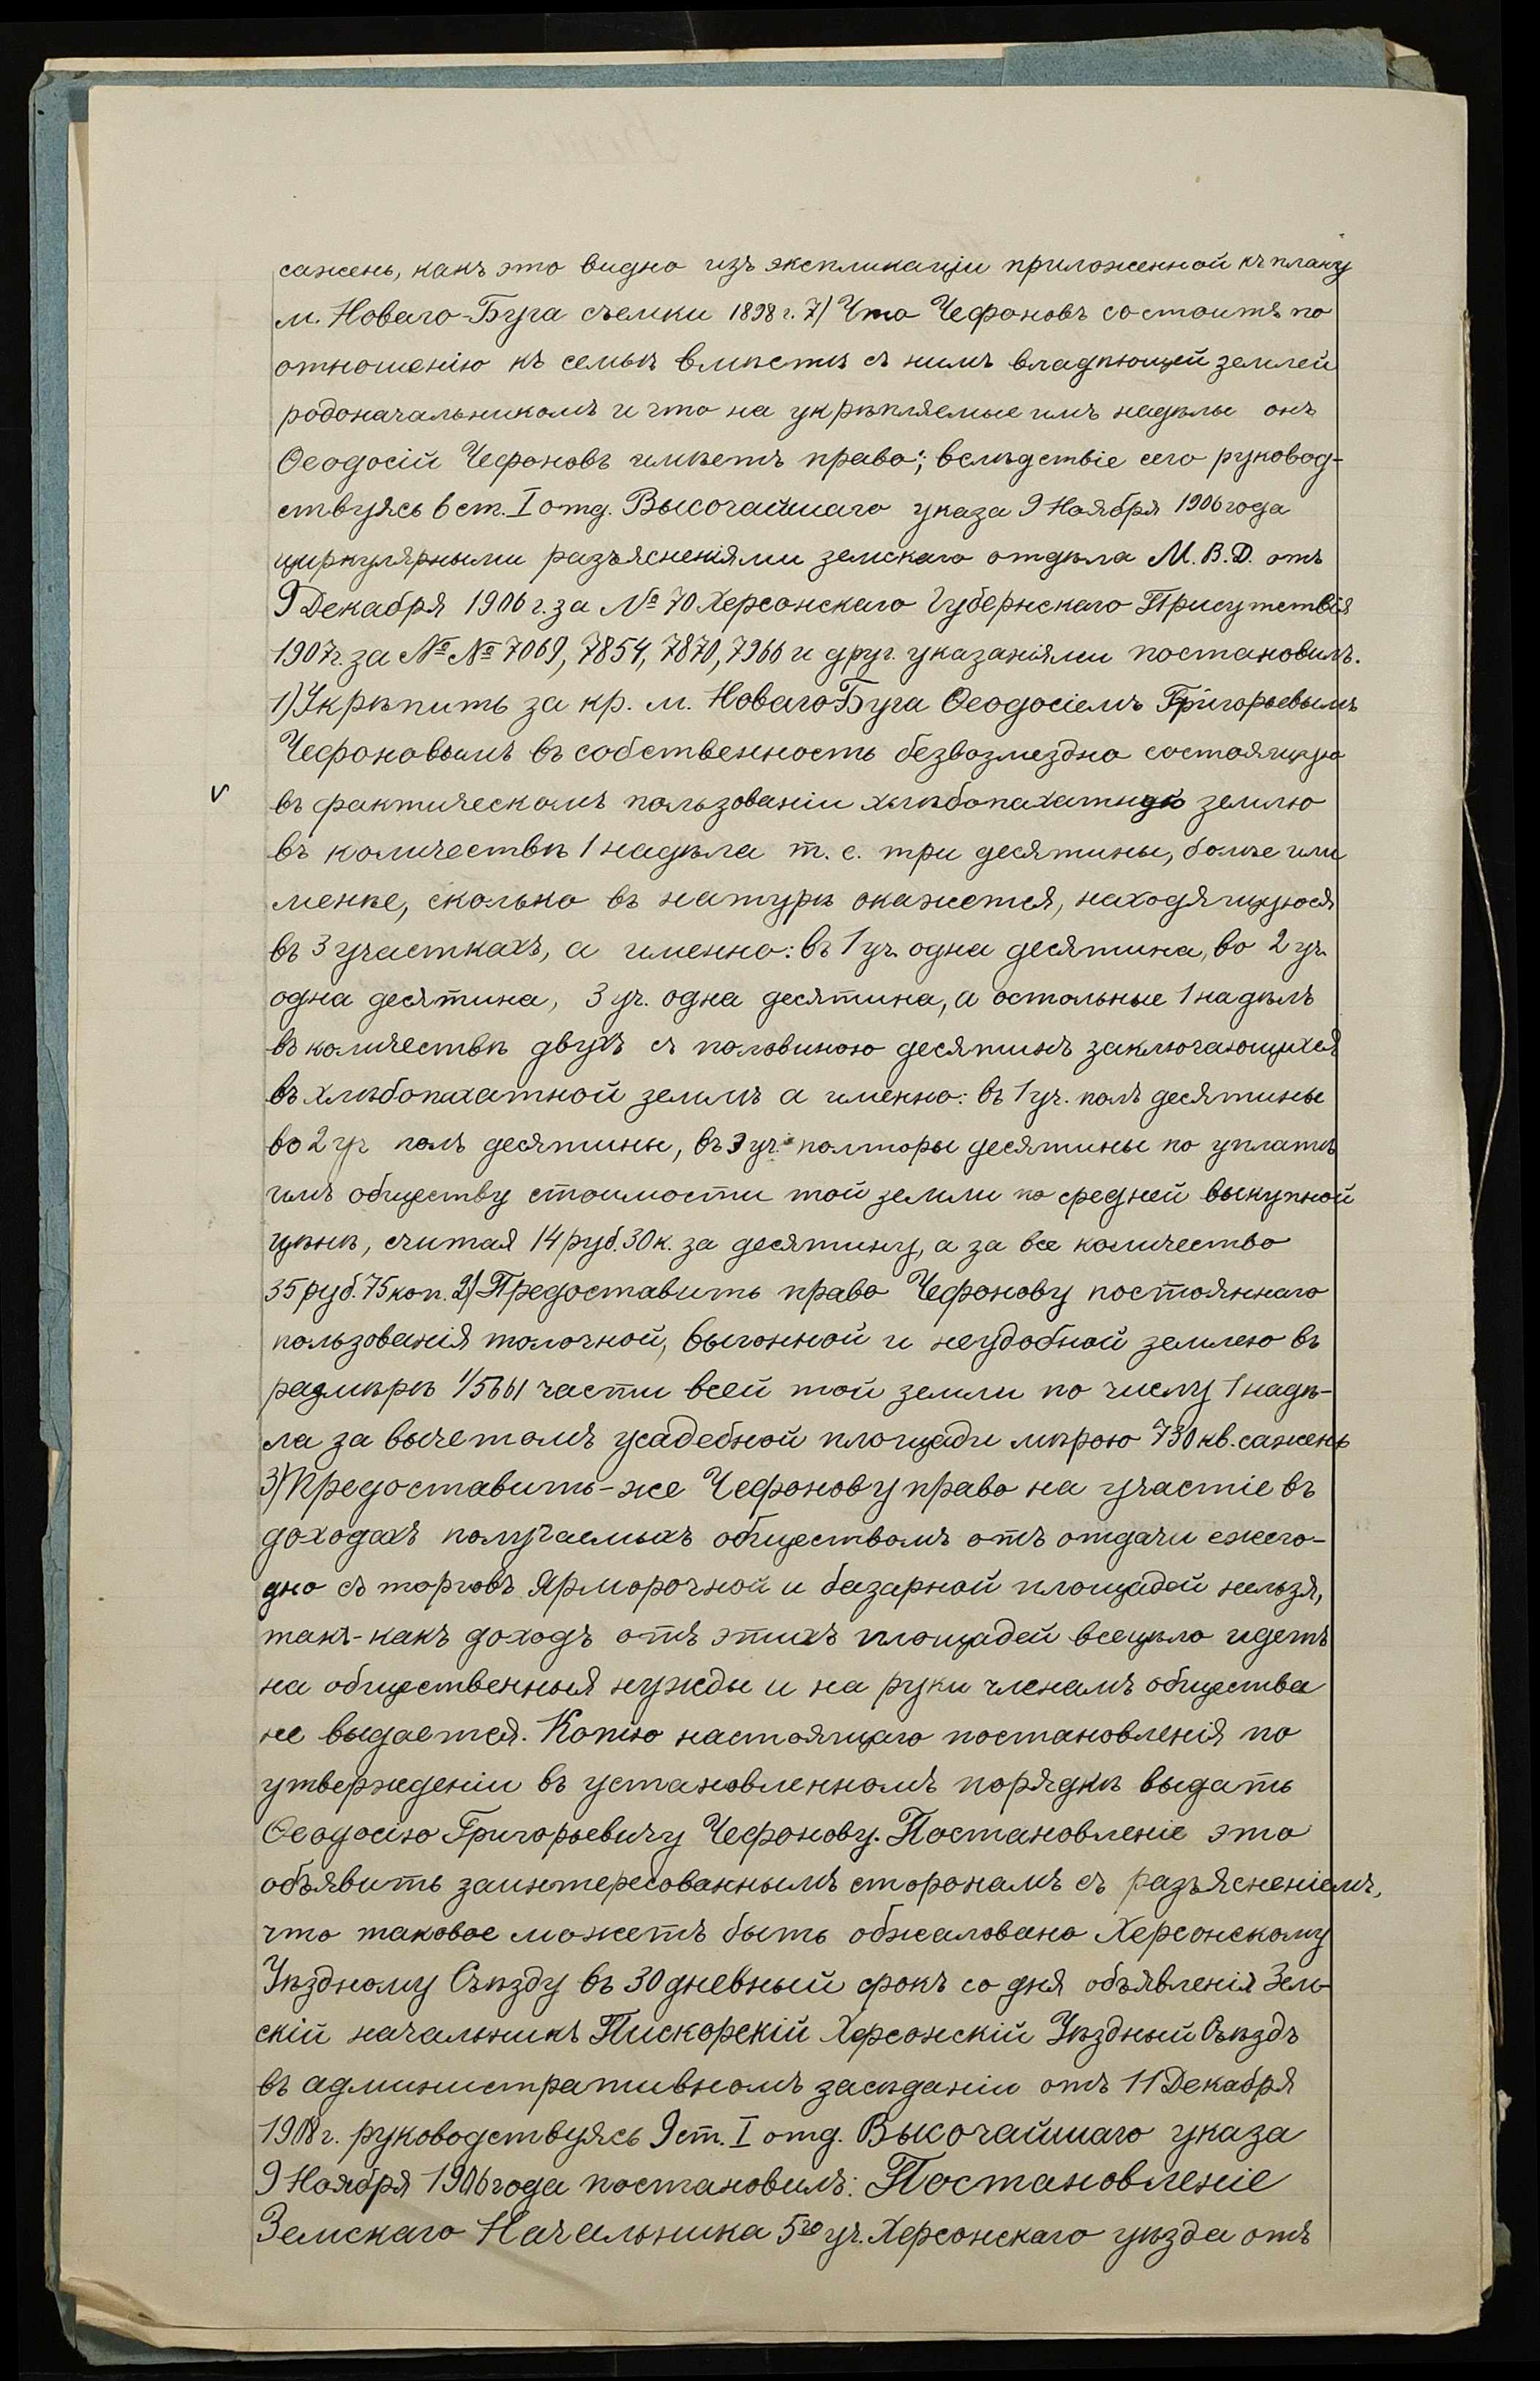 сажень, какъ это видно изъ экспликаціи приложенной къ плану
м. Новаго-Буга съемки 1898 г. 7) Что Чефоновъ состоитъ по
отношенію къ семьѣ вмѣстѣ съ нимъ владѣющей землей
родоначальникомъ и что на укрѣпляемые имъ надѣлы онъ
Ѳеодосій Чефоновъ имѣетъ право“; вслѣдствіе сего руковод-
ствуясь 6 ст. I отд. Высочайшаго указа 9 Ноября 1906 года
циркулярными разъясненіями земскаго отдѣла М. В. Д. отъ
9 Декабря 1906 г. за № 70 Херсонскаго Губернскаго Присутствія
1907г. за №№ 7069, 7854, 7870, 7966 и друг. указаніями постановилъ.
1) Укрѣпить за кр. м. Новаго Буга Ѳеодосіемъ Григорьевымъ
Чефоновымъ въ собственность безвозмездно состоящую
въ фактическомъ пользованіи хлѣбопахатную землю
въ количествѣ 1 надѣла т. е. три десятины, более или
менѣе, сколько въ натурѣ окажется, находящуюся
въ 3 участкахъ, а именно: въ 1 уч. одна десятина, во 2 уч.
одна десятина, 3 уч. одна десятина, а остольные 1 надѣлъ
въ количествѣ двухъ съ половиною десятинъ заключающихся
въ хлѣбопахатной землѣ а именно: въ 1 уч. полъ десятины
во 2 уч полъ десятины, въ 3 уч. полторы десятины по уплатѣ
имъ обществу стоимости той земли по средней выкупной
цѣнѣ, считая 14 руб. 30 к. за десятину, а за все количество
35 руб. 75 коп. 2) Предоставить право Чефонову постояннаго
пользованія толочной, выгонной и неудобной землею въ
размѣрѣ 1/5661 части всей той земли по числу 1 надѣ-
ла за вычетомъ усадебной площади мѣрою 730 кв. сажень
3) Предоставить-же Чефонову право на участіе въ
доходахъ получаемыхъ обществомъ отъ отдачи ежего-
дно съ торговъ ярморочной и базарной площадей нельзя,
такъ-какъ доходъ отъ этихъ площадей всецѣло идетъ
на общественныя нужды и на руки членамъ общества
не выдается. Копію настоящаго постановленія по
утвержденіи въ установленномъ порядкѣ выдать
Ѳеодосію Григорьевичу Чефонову. Постановленіе это
объявить заинтересованнымъ сторонамъ съ разъясненіемъ,
что таковое можетъ быть обжаловано Херсонскому
Уѣздному Съѣзду въ 30 дневный срокъ со дня объявленія Зем-
скій начальникъ Пискорскій Херсонскій Уѣздный Съѣздъ
въ административномъ засѣданіи отъ 11 Декабря
1908 г. руководствуясь 9 ст. I отд. Высочайшаго указа
9 Ноября 1906 года постановилъ: Постановленіе
Земскаго Начальника 5го уч. Херсонскаго уѣзда отъ